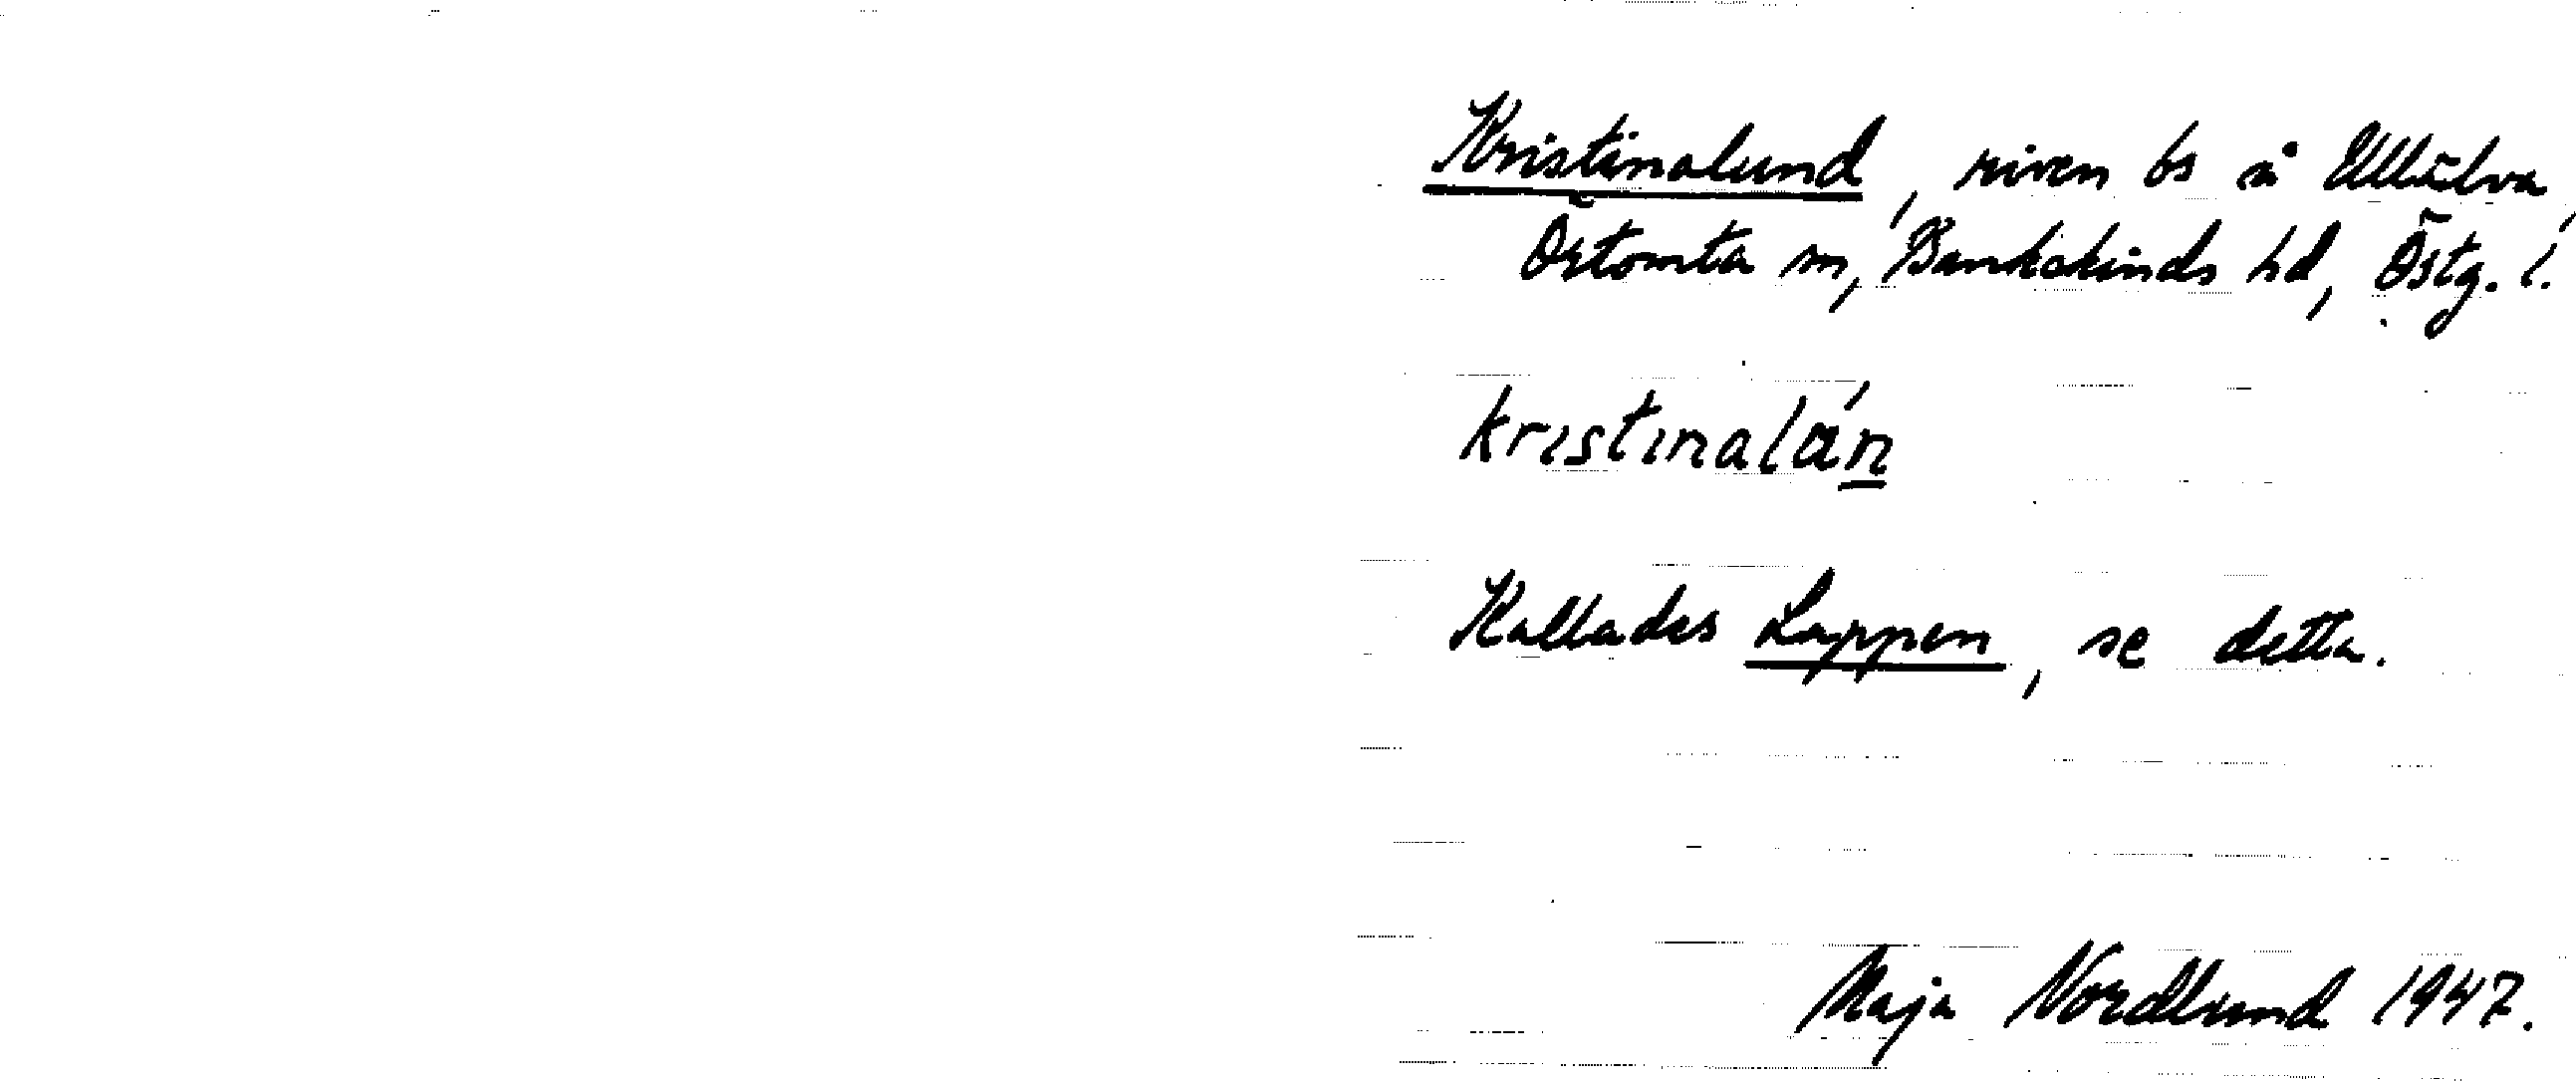 Kristinalund, riven bs å Ullälva,
Östomta sn, Bankekinds hd, Östg. l.
kristinalán
Kallades Lappen, se detta.
Maja Nordlund 1947.